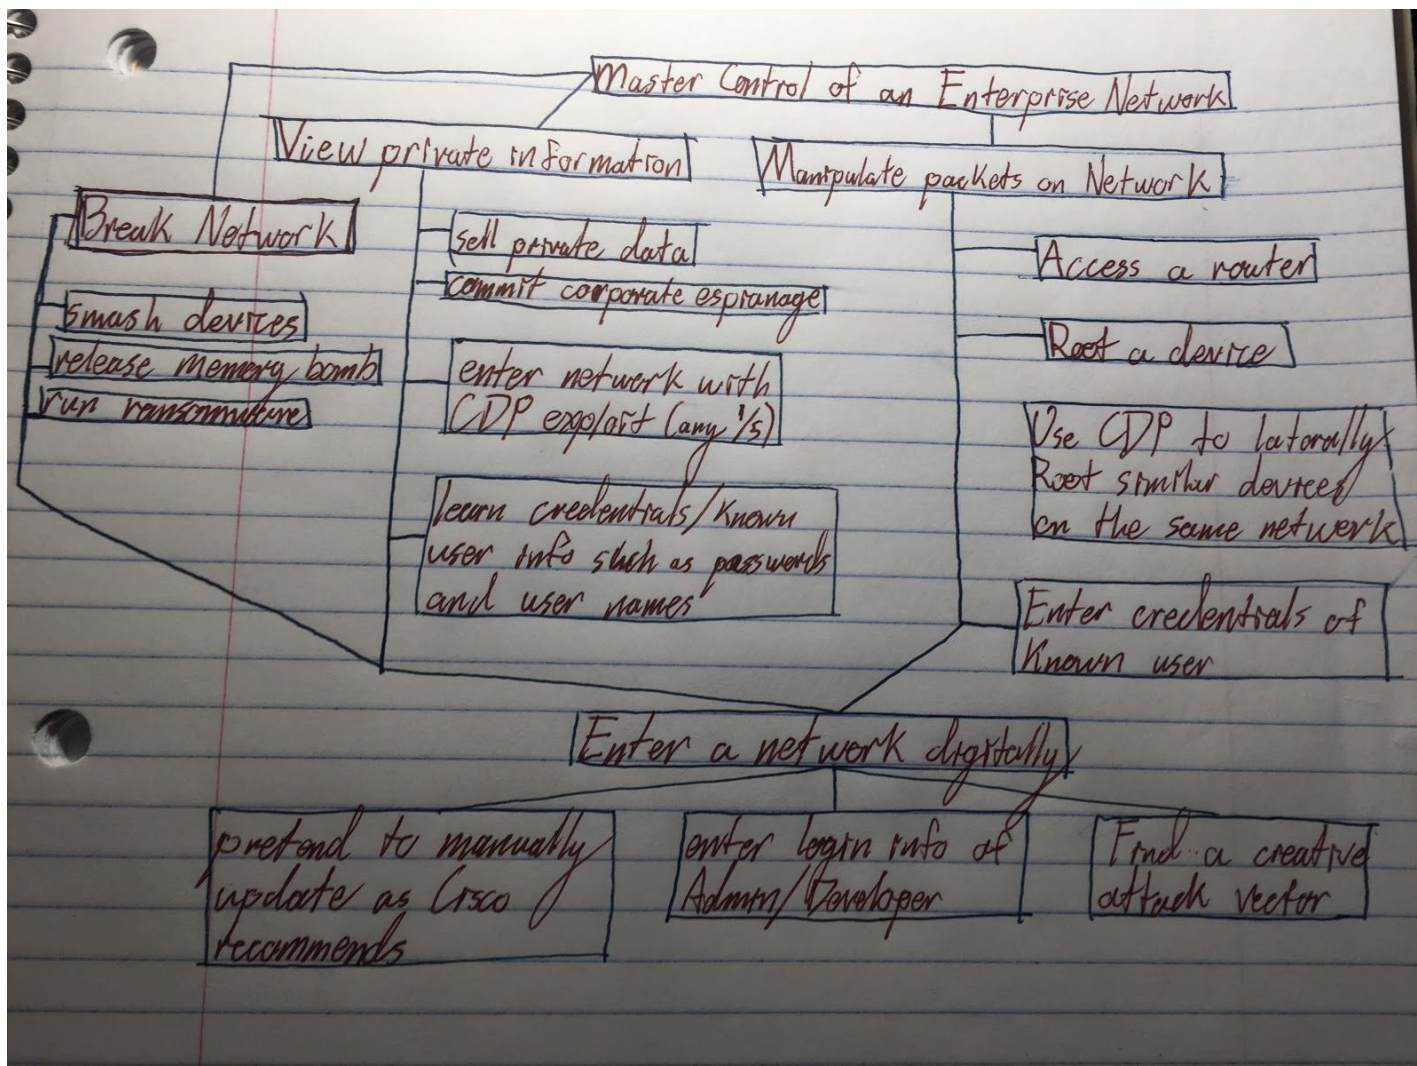 Master Control of an Enterprise Network
View private information
Manipulate packets on Network
Break Network
smash devices
release memory bomb
run ransomware
sell private data
commit corporate espianage
enter network with
CDP exploit (any 1/5)
learn credentials/Known
user info such as passwords
and user names
Access a router
Root a device
Use CDP to laterally
Root similar devices
on the same network
Enter credentials of
Known user
Enter a network digitally
pretend to manually
update as Cisco
recommends
enter login info of
Admin/Developer
Find a creative
attack vector